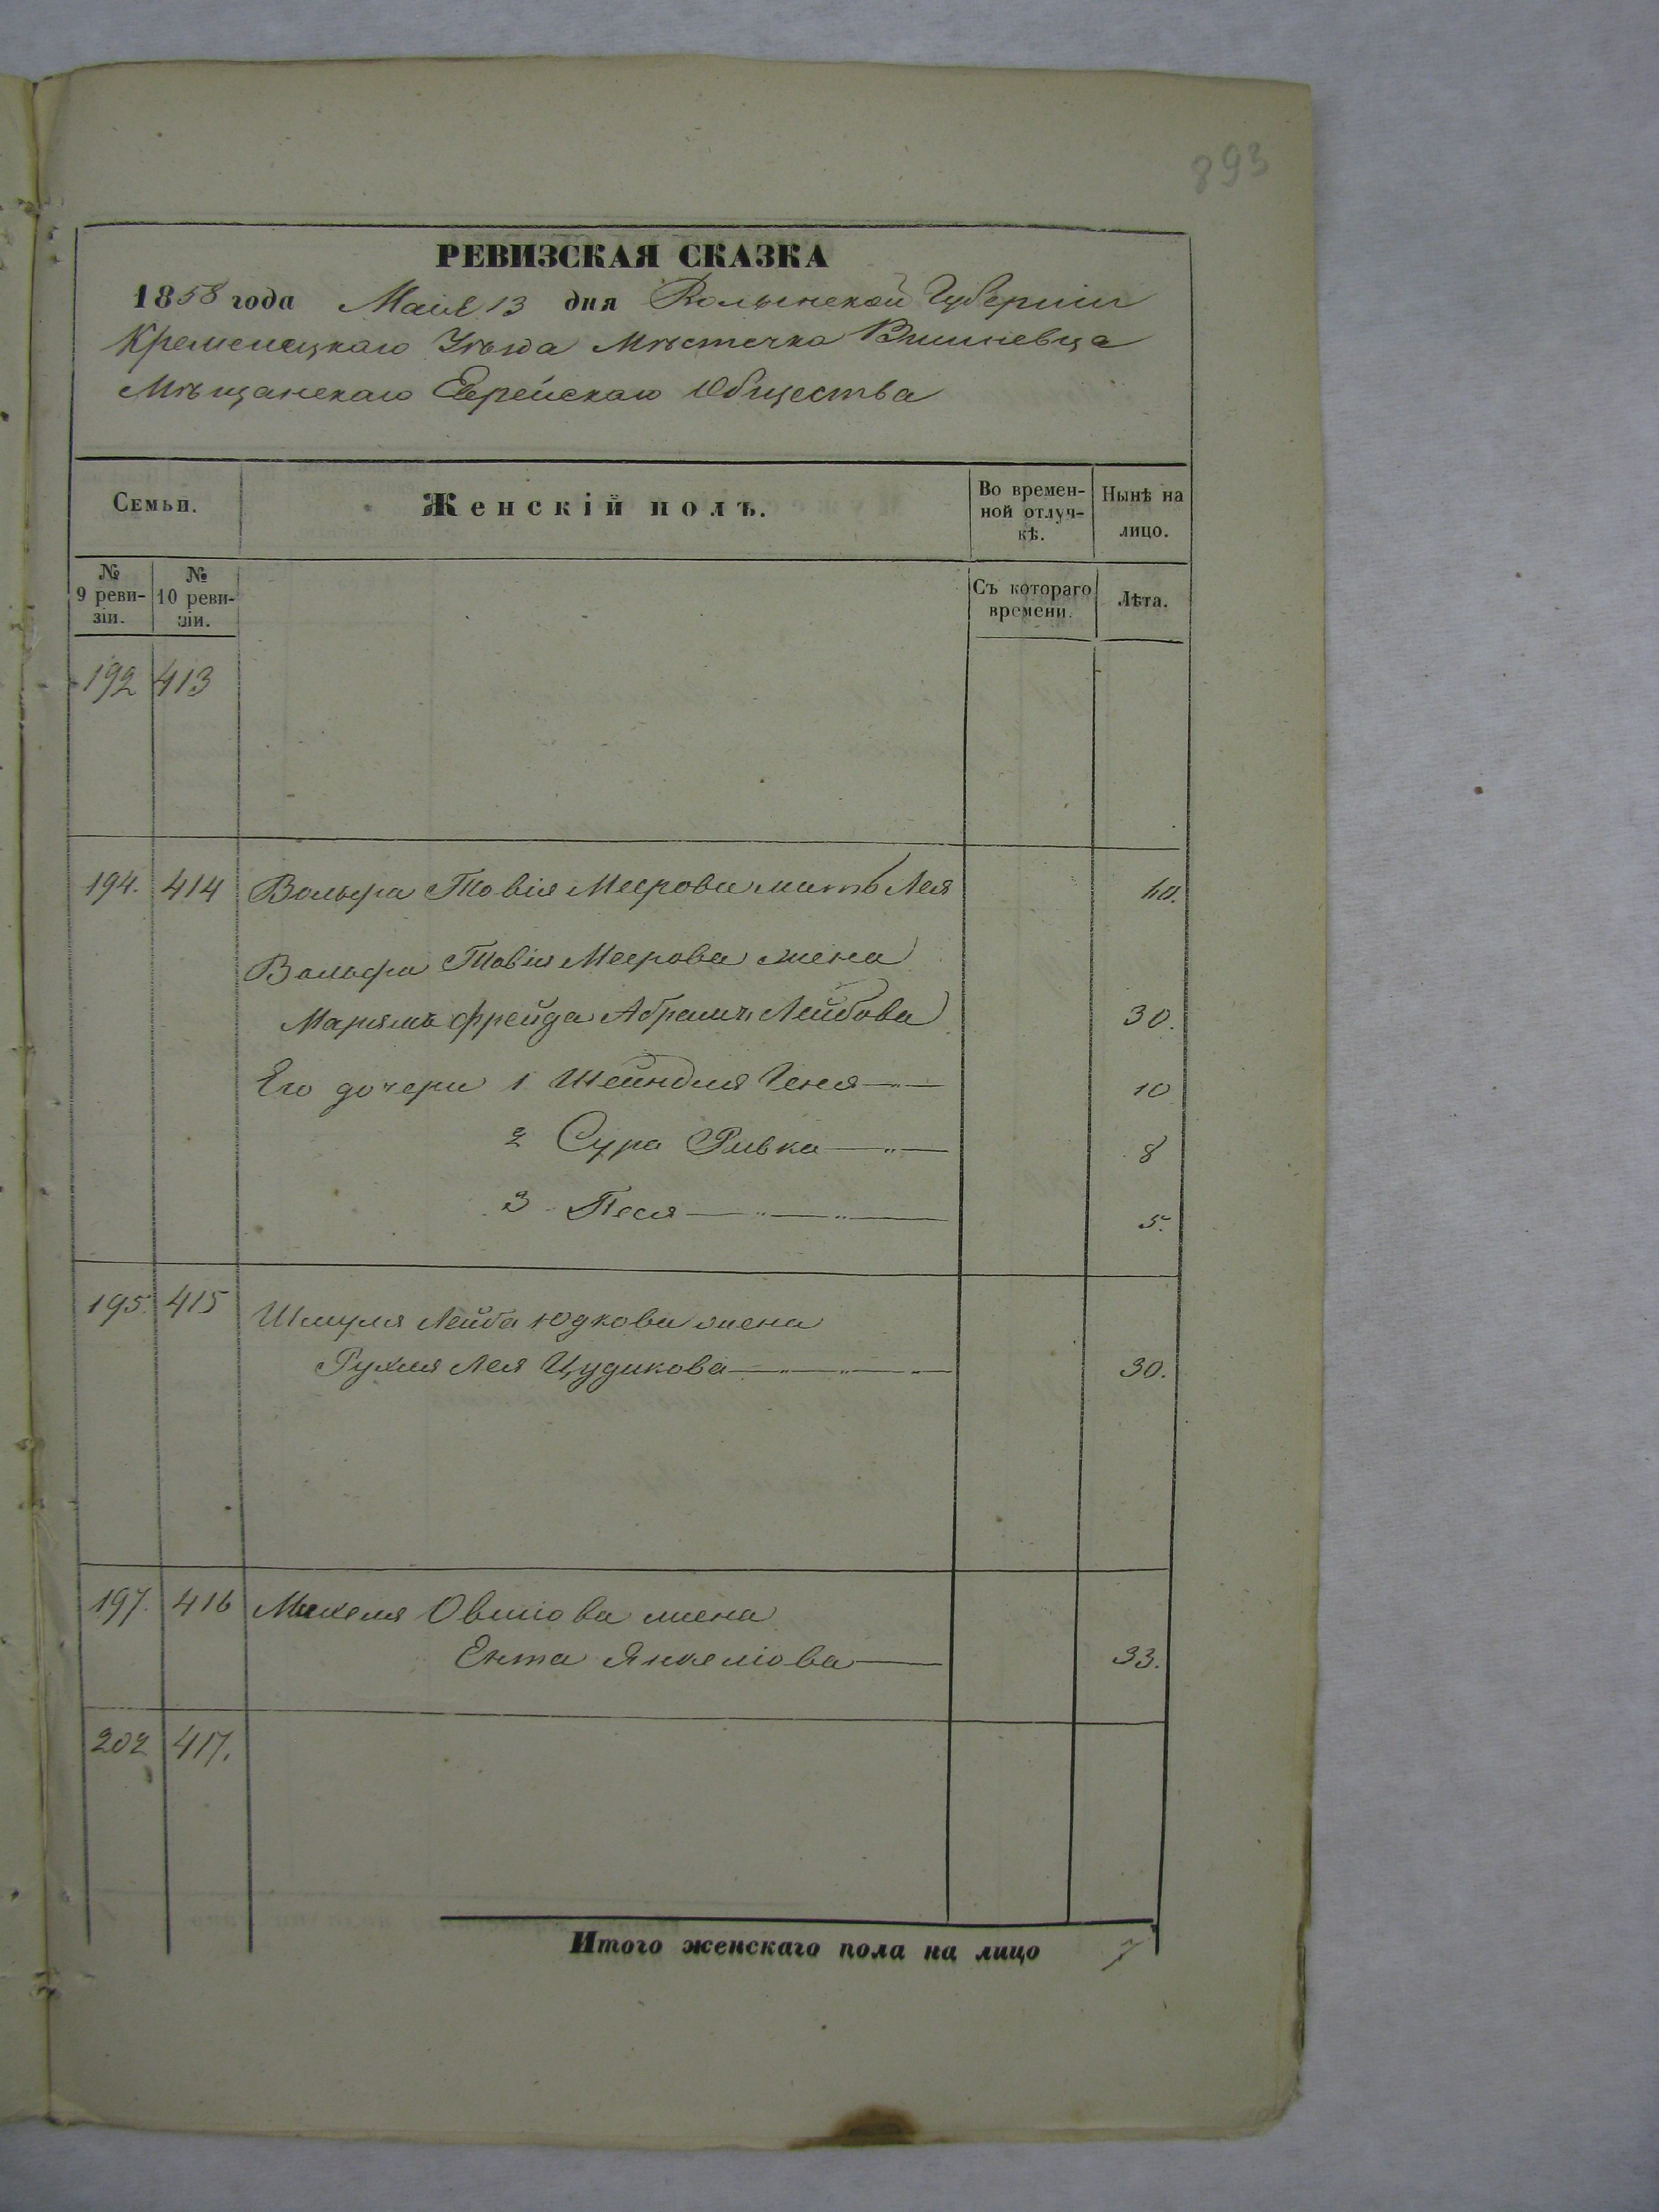 893
РЕВИЗСКАЯ СКАЗКА
1858 года Маія 13 дня Волынской Губерніи
Кременецкаго Уѣзда Мѣстечка Вишневца
Мѣщанскаго Еврейскаго Общества
Семьи. Женскій полъ. Во времен-ной отлуч-кѣ. Нынѣ на лицо.
№ 9 реви-зіи. № 10 реви-зіи. Съ котораго времени. Лѣта.
192 413
194. 414 Вольфа Товія Меерова мать Лея
Вольфа Товія Меерова жена
Марьямъ Фрейда Абрамъ Лейбова 30.
Его дочери 1 Шейндля Геня 10
2 Сура Ривка 8
3 Песя 5.
195. 415 Шмуля Лейба Юдкова жена
Рухля Лея Цудикова 30.
197. 416 Михеля Овшіова жена
Ента Янкеліова 33.
202 417.
Итого женскаго пола на лицо 7